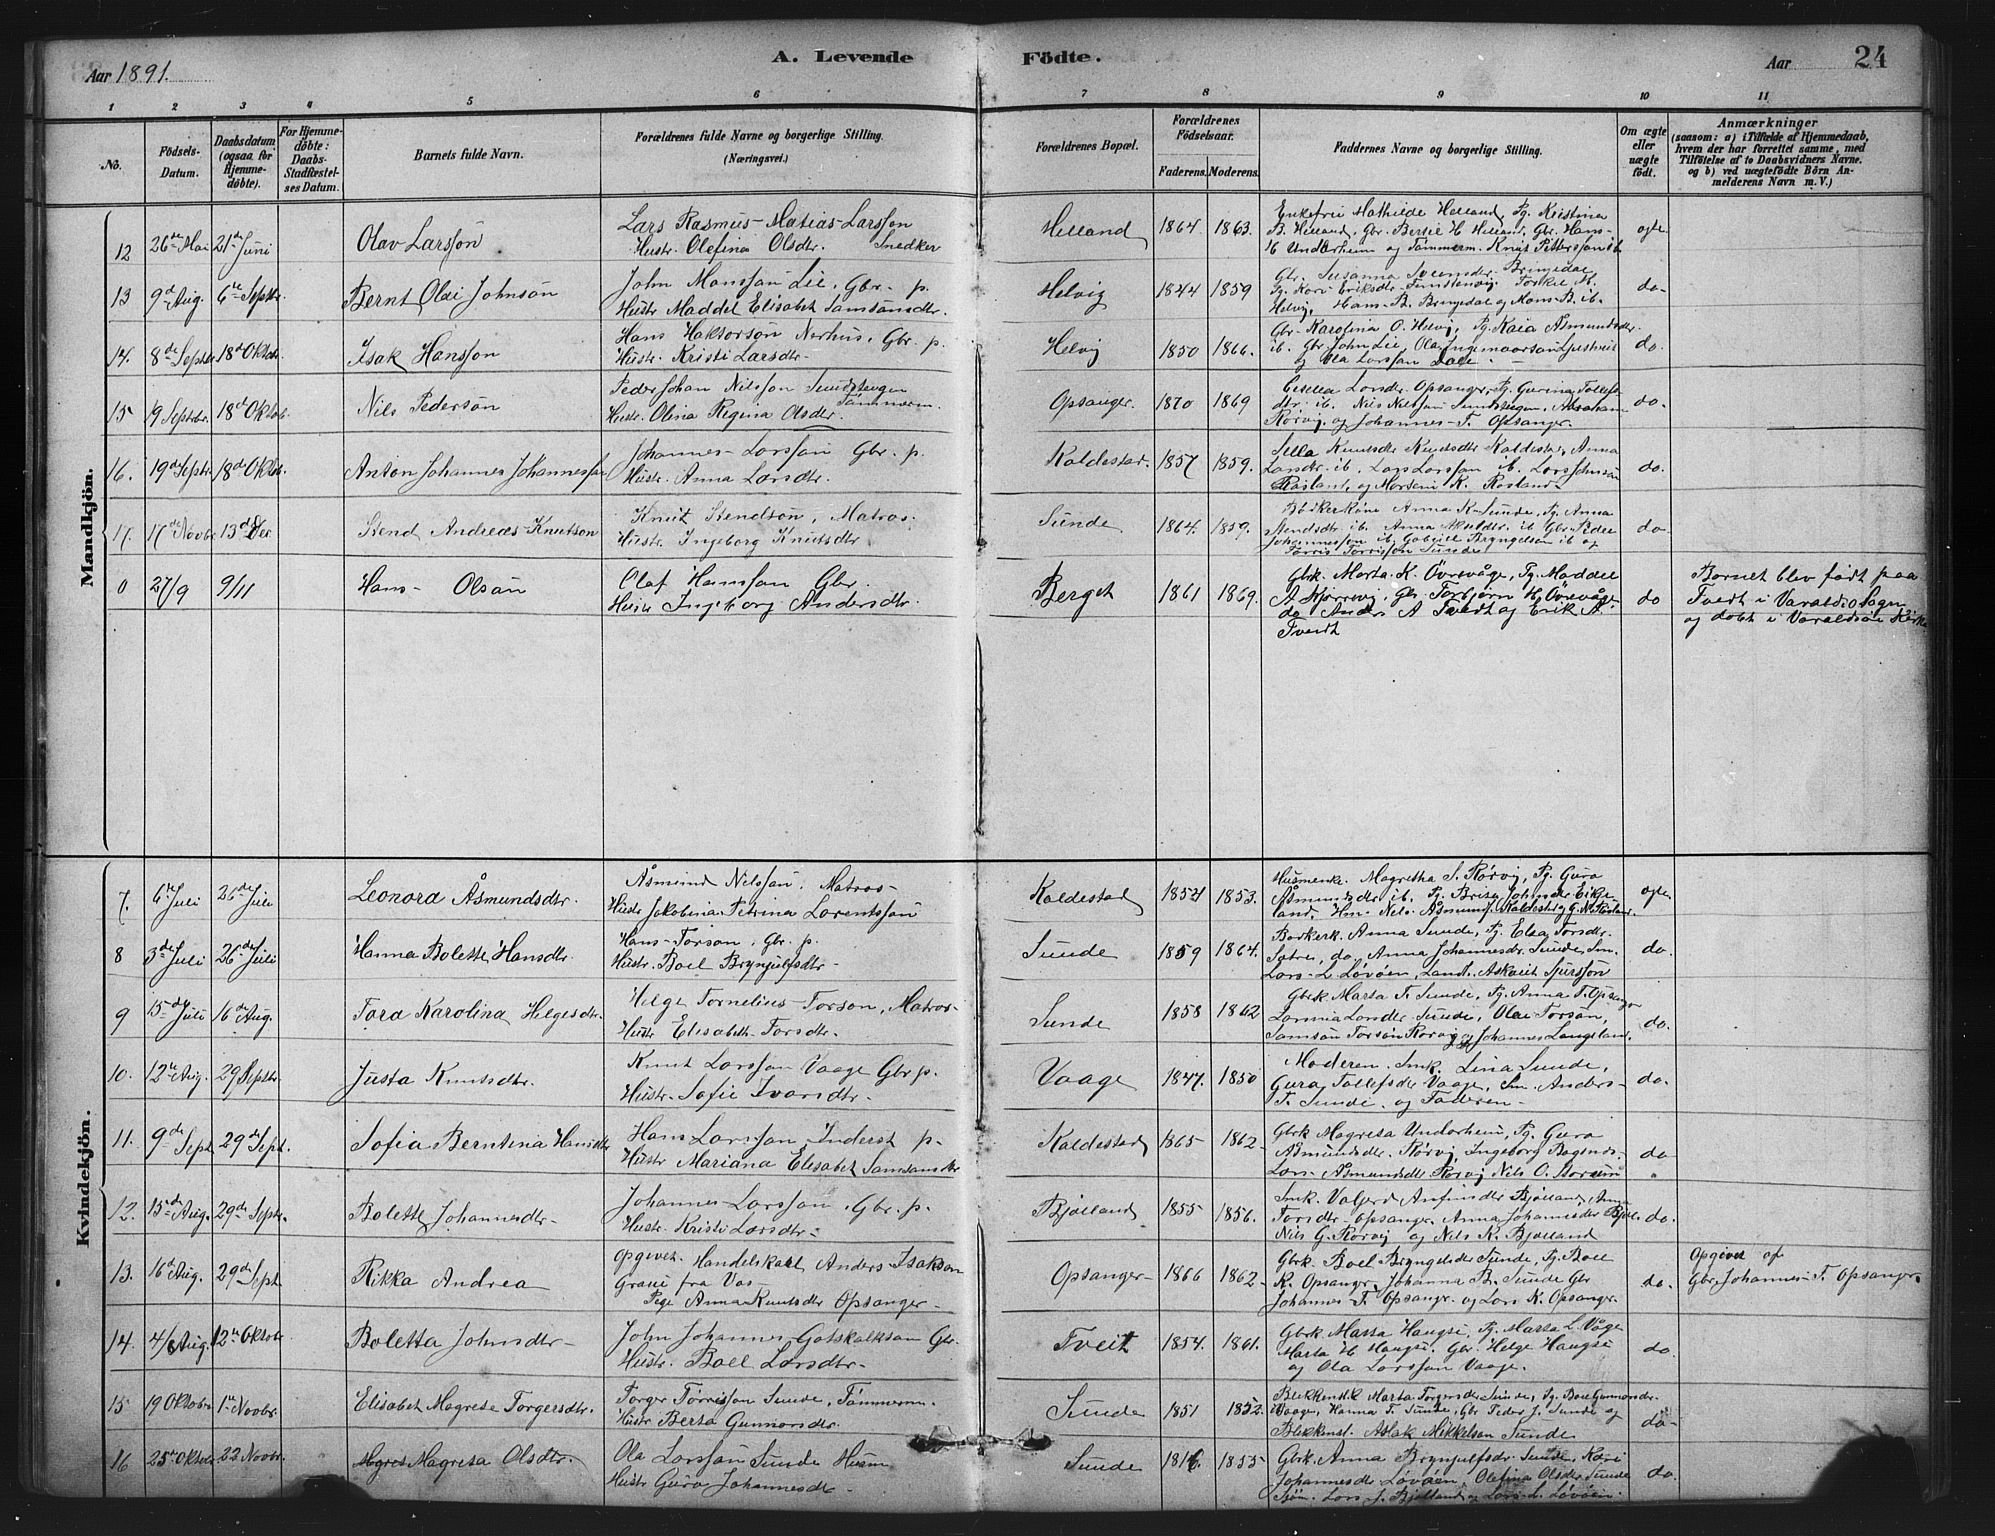 Aar 1891.
A. Levende Födte.
Aar
24
1 2 3 4 5 6 7 8 9 10 11
No.
Födsels-
Datum.
Daabsdatum
(ogsaa for
Hjemme-
döbte).
For Hjemme-
döbte:
Daabs-
Stadfæstel-
ses Datum.
Barnets fulde Navn.
Forældrenes fulde Navne og borgerlige Stilling.
(Næringsvei.)
Forældrenes Bopæl.
Forældrenes
Födselsaar.
Faderens. Moderens.
Faddernes Navne og borgerlige Stilling.
Om ægte
eller
uægte
födt.
Anmærkninger
(saasom: a) i Tilfælde af Hjemmedaab,
hvem der har forrettet samme, med
Tilföielse af to Daabsvidners Navne.
og b) ved uægtefödte Börn An-
melderens Navn m. V.)
Mandkjön.
12 26de Mai 21de Juni Olav Larssön
Lars Rasmus Matias Larssön
Hustr. Olefina Olsdtr. Snedker
Helland 1864 1863.
Enkefru Mathilde Helland, Pg. Kristina
B. Helland, Gbr. Bertil H Helland, Gbr. Hans
H Underheim og Tömmerm. Knut Pettersson ib
ægte.
13 9de Aug. 6te Septbr. Bernt Olai Johnsön
John Monssön Lie, Gbr. p.
Hustr Maddel Elisabet Samsonsdtr.
Helvig 1844 1859
Gbr. Susanna Svensdr Bringedal
Pg. Kari Eriksdtr Torkel M.
Helvig, Hans B. Bringedal og Mons B. ib.
do.
14. 8de Septbr 18de Oktbr. Isak Hanssön
Hans Haktorsön Nerhus, Gbr. p.
Hustr. Kristi Larsdtr.
Helvig 1850 1866.
Gbr. Karolina O. Helvig, Pg. Kaia Åsmundsdtr.
ib. Gbr. John Lie, Ola Ingemaorsön
og Ola Larssön Dale
do.
15 19 Septbr. 18de Oktob. Nils Pedersön
Peder Johan Nilssön Sundsteigen
Tömmerm.
Hustr. Olina Regina Olsdtr.
Opsanger. 1870 1869
Cesilia Larsdr. Opsanger, Pg. Gurina Tollefs
dtr. ib. Nils Nilssön Sundsteigen, Abraham
Rörvig, og Johannes T. Opsanger.
do.
16. 19de Septr 18de Oktbr. Anton Johannes Johannessön
Johannes Larssön Gbr. p.
Hustr. Anna Larsdtr.
Kaldestad. 1857 1859.
Sella Knutsdtr Kaldestad, Anna
Larsdr. ib. Lars Larssön ib. Lars Johnsön
Røsland, og Martein K. Røsland
do.
17. 17de Novbr 13de Dec. Stend Andreas Knutson
Knut Stendsön, Matros.
Hustr. Ingeborg Knutsdtr
Sunde 1864. 1859.
Bödkerkone Anna K. Sunde, Pg. Anna
Stendsdtr ib. Anna ib. Gbr. Peder
Johannessön ib. Gabriel Bryngelsen ib og
Torris Torrissön Sunde
do
0 27/9 9/11 Hans Olsön
Olaf Hanssön Gbr.
Hustr Ingeborg Andersdtr.
Berget 1861 1869.
Gbrk. Marta K. Övrevåge, Pg. Maddel
A Skjerrevig, Gbr. Torbjørn H. Övrevåge
do Anders A Tvedt og Erik A
Tvedt
do
Barnet blev født paa
Tvedt i Varaldsö Sogn
og døbt i Varaldsöe Kirke
Kvindekjön.
7. 6te Juli 26de Juli Leonora Åsmundsdtr.
Åsmund Nilssön. Matros
Hustr Jakobina Petrina Lorentssön
Kaldestad 1854 1853.
Husmenke. Magretha S. Rörvig, Pg. Gura
Åsmundsdtr ib. Pg. Brita Johnsdtr Eike-
land, Hm. Nils Åsmunds. Kaldestad og G. N. Røsland.
ægte
8 3de Juli 26de Juli Hanna Bolette Hansdtr.
Hans Torsön, Gbr. p.
Hustr. Boel Brynjulfsdtr
Sunde 1859 1864.
Bødkerk. Anna Sunde, Pg. Elsa Torsdtr.
Sætre, do, Anna Johannesdr. Sunde, Sm.
Lars L. Løvøen, Landh. Askvit Sjurssön
do.
9 15de Juli 16de Aug. Tora Karolina Helgesdtr.
Helge Tornelius Torson, Matros
Hustr Elisabeth Torsdtr.
Sunde 1858 1862
Gbrk Marta T. Sunde, Pg. Anna T. Opsanger
Lamina Larsdtr Sunde, Olai Torsön,
Samson Torsön Rörvig og Johannes Langeland.
do.
10. 12te Aug. 29 Septbr Justa Knutsdtr.
Knut Larssön Vaage Gbr p.
Hustr. Sofie Ivarsdtr.
Vaage 1847. 1850
Moderen. Smk. Lina Sunde,
Gura Tollefsdr Vaage, Sm. Anders
T. Sunde. og Faderen
do.
11. 9de Sept 29de Sept. Sofia Berntina Hansdtr
Hans Larssön Inderst p.
Hustr Mariana Elisabet Samsansdtr
Kaldestad 1865 1862
Gbrk Magreta Undarheim, Pg. Gura
Åsmundsdtr. Rörvig, Ingeborg
Lars Åsmundsdtr Rörvig Nils O.
do
12. 15de Aug. 29de Septr. Bolette Johannesdtr
Johannes Larssön, Gbr. p.
Hustr. Kristi Larsdtr
Bjølland 1855 1856.
Smk. Valgerd Anfinsdtr Bjølland, Anna
Torsdtr Opsanger. Anna Johannesdtr Bjøl.
Nils G. Rörvig og Nils K. Bjølland
do.
13. 16de Aug. 29de Sept Rikka Andrea
Opgivet. Handelskarl Anders Isakson
Graue fra Vos
Pige Anna Knutsdtr Opsanger
Opsanger 1866 1862
Gbrk. Boel Bryngelsdtr Sunde, Pg. Boel
K. Opsanger, Johanna B. Sunde Gbr
Johannes T. Opsanger og Lars K. Opsanger.
do.
Opgivet af
Gbr. Johannes T. Opsanger.
14. 4/ Aug. 12te Oktobr. Boletta Johnsdtr
John Johannes Gotskalksön Gbr.
Hustr. Boel Larsdtr
Tveit 1854. 1861.
Gbrk. Marta Haugse, Pg. Marta L. Våge
Marta H Haugse. Gbr. Helge Haugse
og Ola Larssön Vaage.
do.
15 19 Oktobr 1te Novbr. Elisabet Magrete Torgersdtr.
Torger Torrissön Sunde, Tömmerm.
Hustr Berta Gunnarsdtr.
Sunde 1851 1852.
Blikkensl.k Marta Torgersdr Sunde, Pg. Boel Gunnarsdr.
Vaage, Hanna T. Sunde, Gbr. Peder J. Sunde og
Blikkensl. Aslak Mikkelson Sunde
do
16 25de Oktobr 22 Novbr. Magreta Olsdtr.
Ola Larssön Sunde Husm
Hustr Guro Johannesdtr
Sunde 1855
Gbrk. Anna Brynjulfsdr Sunde, Kari
Johannesdr Løvøen, Olefina Olsdtr Sunde
Lars J. Bjølland og Lars L. Løvøen.
do.